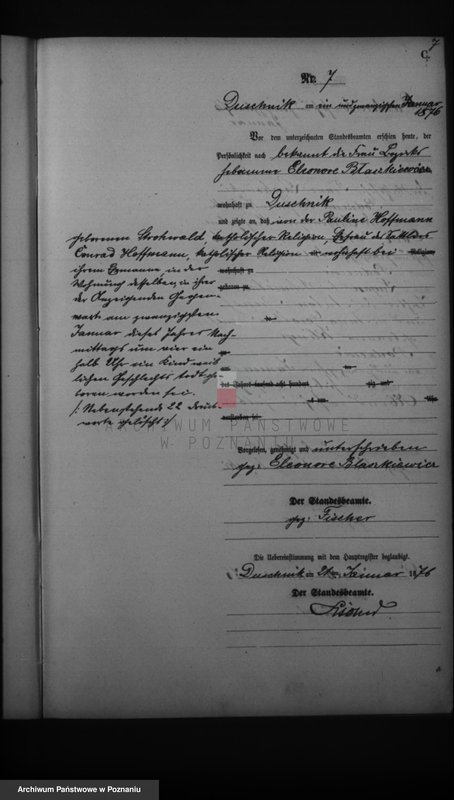 7
C.
Nr. 7
Duschnik am ein und zwanzigsten Januar
1876
Vor dem unterzeichneten Standesbeamten erschien heute, der
Persönlichkeit nach bekannt die Frau Bezirks
hebamme Eleonore Blaszkiewicz
wohnhaft zu Duschnik
und zeigte an, daß von der Pauline Hoffmann
geborenen Strohwald, katholischer Religion, Ehefrau des
Conrad Hoffmann, katholischer Religion wohnhaft bei
ihrem Ehemanne, in der
Wohnung desselben, in ihrer
der Anzeigenden Gegen-
wart am zwanzigsten
Januar dieses Jahres Nach-
mittags um vier ein
halb Uhr ein Kind weib-
lichen Geschlechts todt ge-
boren worden sei.
/: Nebenstehende 22 Druck-
worte gelöscht :/
wohnhaft zu
geboren zu
des Jahres tausend acht hundert
Vorgelesen, genehmigt und unterschrieben
gez: Eleonore Blaszkiewicz
Der Standesbeamte.
gez: Fischer
Die Uebereinstimmung mit dem Hauptregister beglaubigt.
Duschnik am 21ten Januar 1876
Der Standesbeamte.
ARCHIWUM PAŃSTWOWE
W POZNANIU
Archiwum Państwowe w Poznaniu